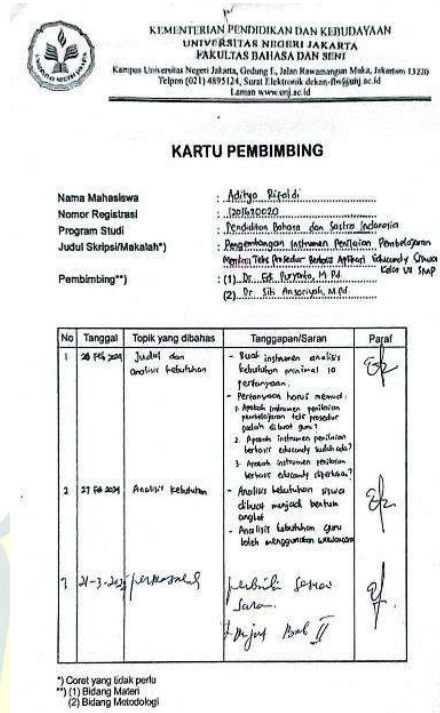 KEMENTERIAN PENDIDIKAN DAN KEBUDAYAAN
UNIVERSITAS NEGERI JAKARTA
FAKULTAS BAHASA DAN SENI
Kampus Universitas Negeri Jakarta, Gedung E, Jalan Rawamangun Muka, Jakarta 13220
Telpon (021) 4895124, Surat Elektronik dekan-fbs@unj.ac.id
Laman www.unj.ac.id
KARTU PEMBIMBING
Nama Mahasiswa : Aditya Rifaldi
Nomor Registrasi : 1201620020
Program Studi : Pendidikan Bahasa dan Sastra Indonesia
Judul Skripsi/Makalah*) : Pengembangan Instrumen Penilaian Pembelajaran
Menulis Teks Prosedur Berbasis Aplikasi Educandy Siswa
Kelas VII SMP
Pembimbing**) : (1) Dr. Edi Puryanto, M.Pd.
(2) Dr. Siti Ansoriyah, M.Pd.
No Tanggal Topik yang dibahas Tanggapan/Saran Paraf
1 20 Feb 2024 Judul dan - Buat instrumen analisis
analisis kebutuhan kebutuhan minimal 10
pertanyaan.
- Pertanyaan harus memuat:
1. Apakah instrumen penilaian
pembelajaran teks prosedur
sudah dibuat guru?
2. Apakah instrumen penilaian
berbasis educandy sudah ada?
3. Apakah instrumen penilaian
berbasis educandy diperlukan?
2 27 Feb 2024 Analisis kebutuhan - Analisis kebutuhan siswa
dibuat menjadi bentuk
angket
- Analisis kebutuhan guru
boleh menggunakan wawancara
3 21-3-2024 perbaiki sesuai
saran.
Lanjut Bab II
*) Coret yang tidak perlu
**) (1) Bidang Materi
(2) Bidang Metodologi